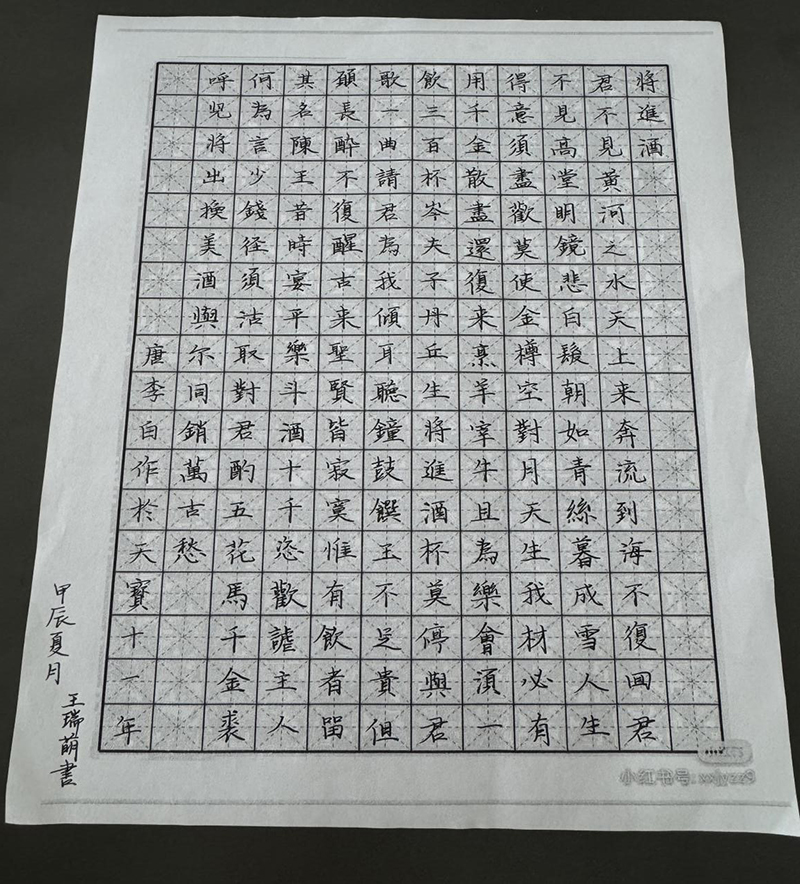 將進酒
君不見黃河之水天上来奔流到海不復囬君
不見高堂明鏡悲白髮朝如青絲暮成雪人生
得意須盡歡莫使金樽空對月天生我材必有
用千金散盡還復来烹羊宰牛且為樂會須一
飲三百杯岑夫子丹丘生將進酒杯莫停與君
歌一曲請君為我傾耳聽鐘鼓饌玉不足貴但
願長醉不復醒古来聖賢皆寂寞惟有飲者留
其名陳王昔時宴平樂斗酒十千恣歡謔主人
何為言少錢径須沽取對君酌五花馬千金裘
呼兒將出換美酒與尔同銷萬古愁
唐李白作於天寶十一年
甲辰夏月
王瑞萌書
小红书号: